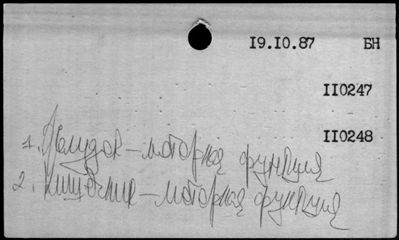 19.10.87 БН
110247
110248
1. Желудок – моторная функция
2. Кишечник – моторная функция